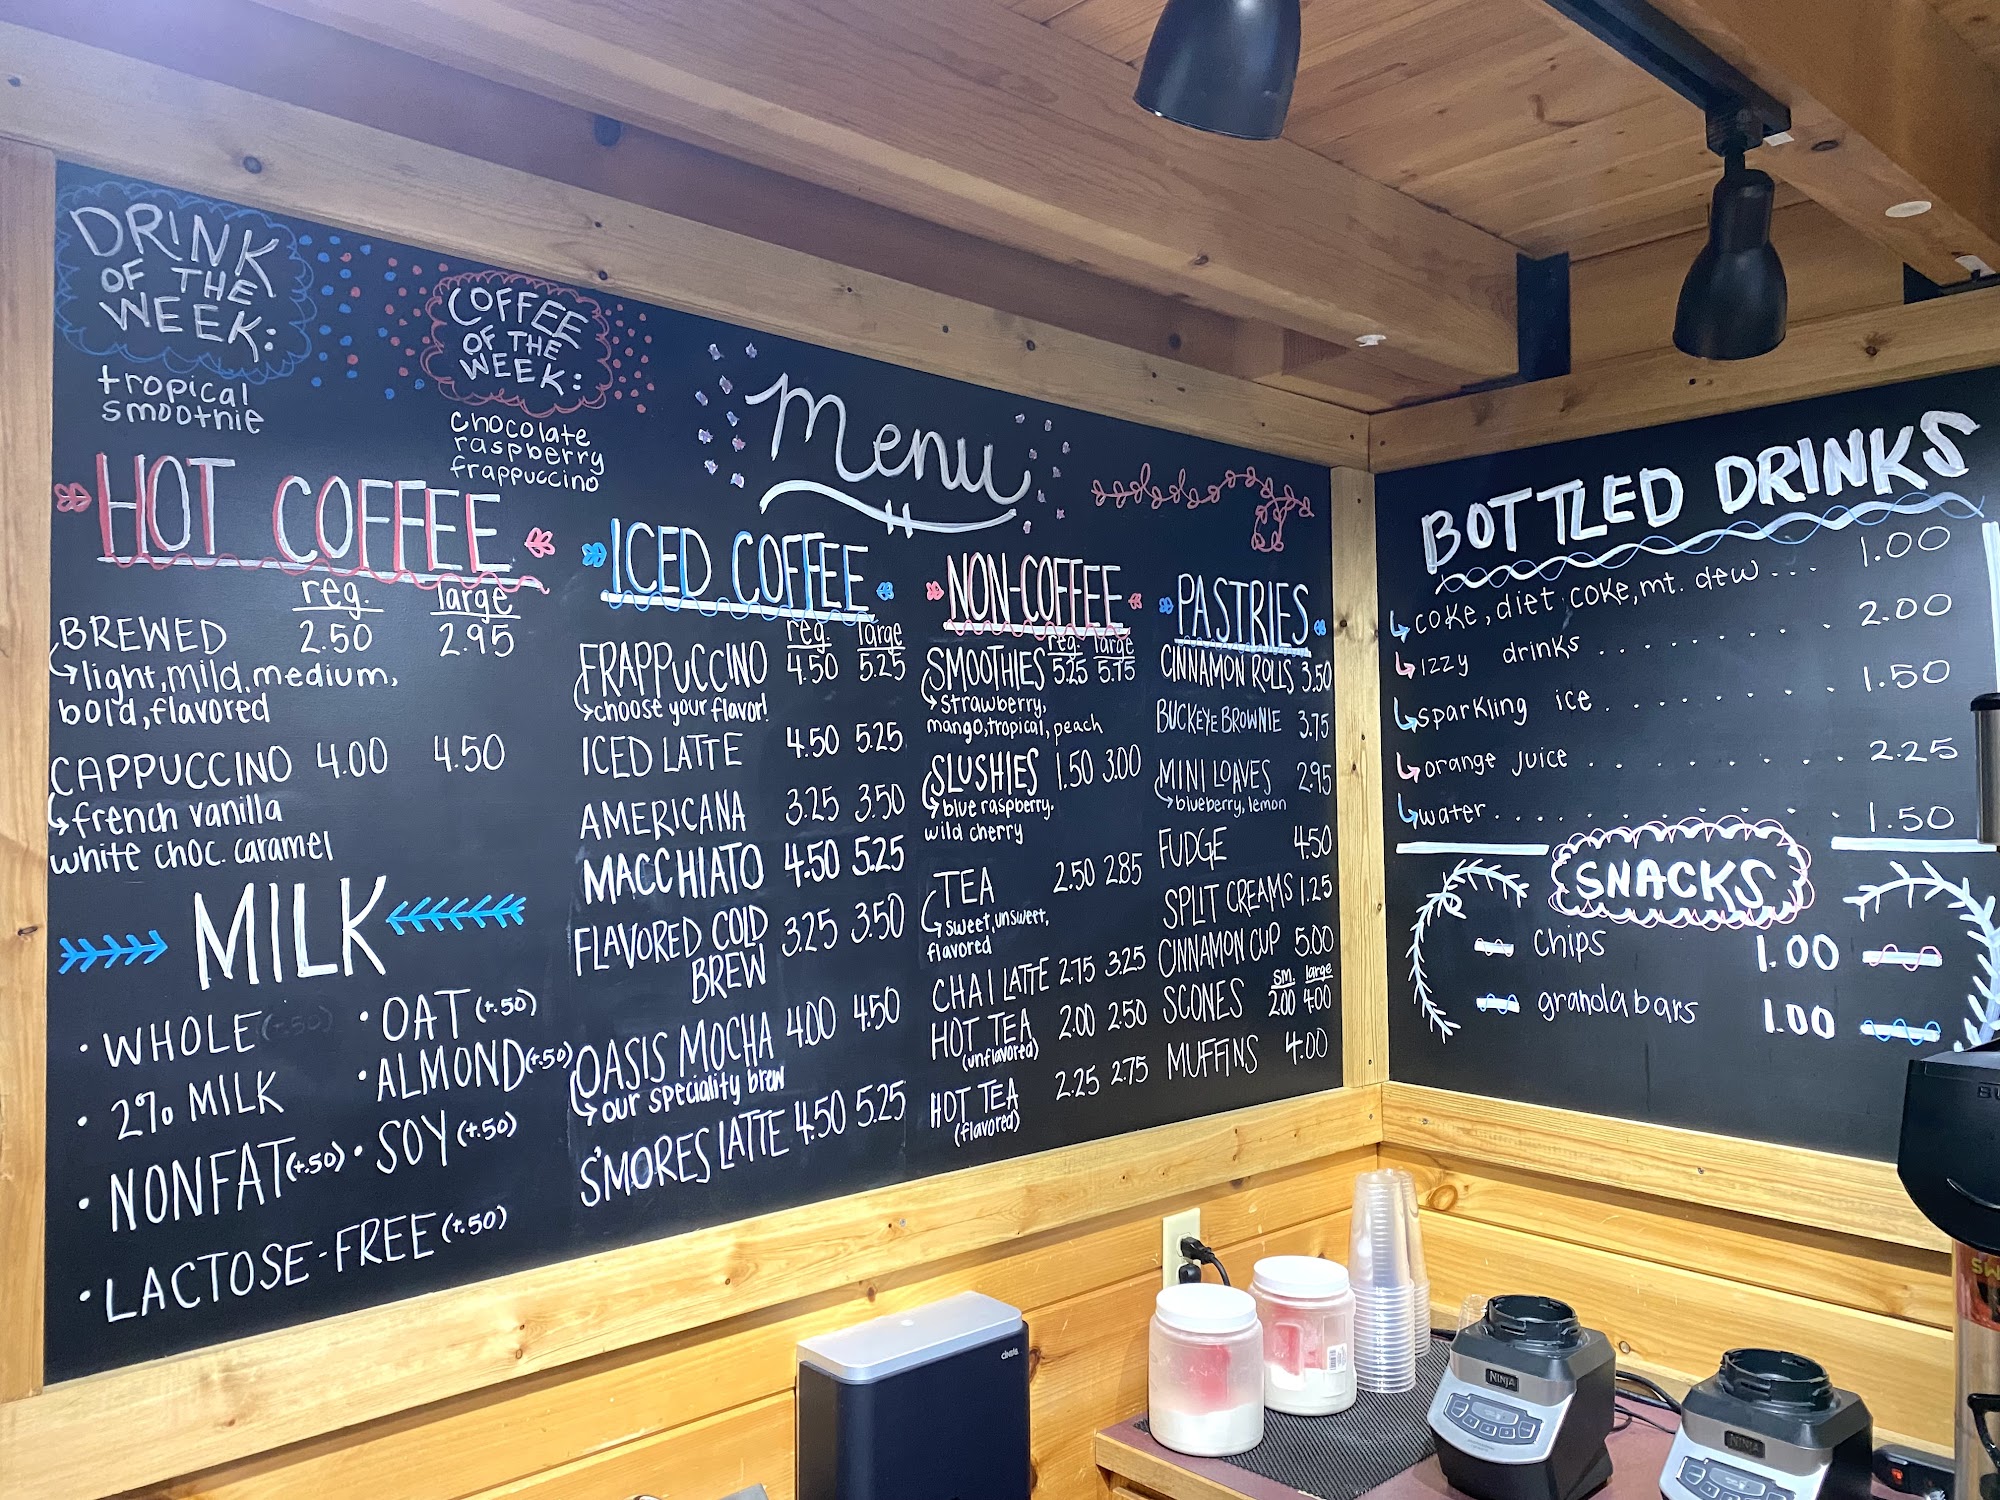 DRINK
OF THE
WEEK:
tropical
smoothie
COFFEE
OF THE
WEEK:
chocolate
raspberry
frappuccino
Menu
HOT COFFEE
reg. large
BREWED 2.50 2.95
light, mild, medium,
bold, flavored
CAPPUCCINO 4.00 4.50
french vanilla
white choc. caramel
MILK
• WHOLE (+.50)
• 2% MILK
• NONFAT (+.50)
• LACTOSE-FREE (+.50)
• OAT (+.50)
• ALMOND (+.50)
• SOY (+.50)
ICED COFFEE
reg. large
FRAPPUCCINO 4.50 5.25
choose your flavor!
ICED LATTE 4.50 5.25
AMERICANA 3.25 3.50
MACCHIATO 4.50 5.25
FLAVORED COLD 3.25 3.50
BREW
OASIS MOCHA 4.00 4.50
our speciality brew
S'MORES LATTE 4.50 5.25
NON-COFFEE
reg. large
SMOOTHIES 5.25 5.75
strawberry,
mango, tropical, peach
SLUSHIES 1.50 3.00
blue raspberry,
wild cherry
TEA 2.50 2.85
sweet, unsweet,
flavored
CHAI LATTE 2.75 3.25
HOT TEA 2.00 2.50
(unflavored)
HOT TEA 2.25 2.75
(flavored)
PASTRIES
CINNAMON ROLLS 3.50
BUCKEYE BROWNIE 3.75
MINI LOAVES 2.95
blueberry, lemon
FUDGE 4.50
SPLIT CREAMS 1.25
CINNAMON CUP 5.00
sm. large
SCONES 2.00 4.00
MUFFINS 4.00
BOTTLED DRINKS
coke, diet coke, mt. dew... 1.00
izzy drinks ....... 2.00
sparkling ice ........ 1.50
orange juice ......... 2.25
water ........... 1.50
SNACKS
chips 1.00
granola bars 1.00
NINJA
NINJA